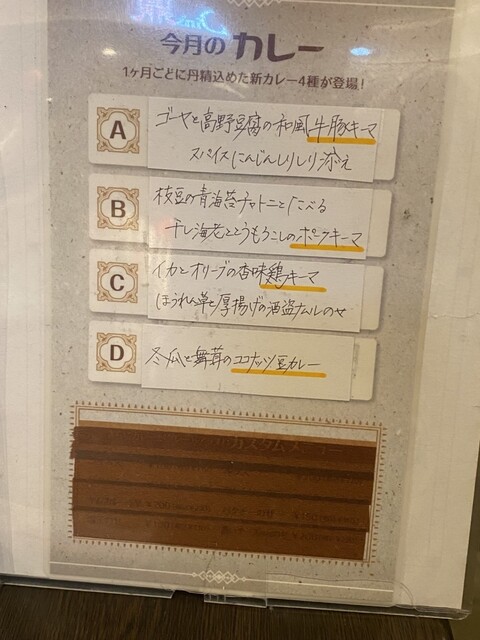 今月のカレー
1ヶ月ごとに丹精込めた新カレー4種が登場!
A
ゴーヤと高野豆腐の和風牛豚キーマ
スパイスにんじんしりしり添え
B
枝豆の青海苔チャトニとたべる
干し海老ととうもろこしのポークキーマ
C
イカとオリーブの香味鶏キーマ
ほうれん草と厚揚げの酒盗ナムルのせ
D
冬瓜と舞茸のココナッツ豆カレー
カスタムメニュー